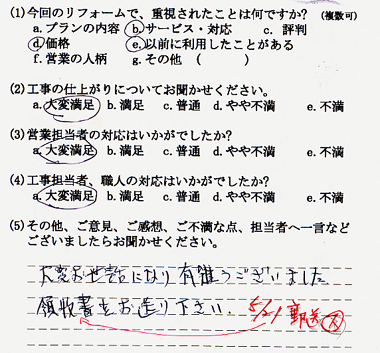 (1)今回のリフォームで、重視されたことは何ですか? (複数可)
a.プランの内容 b.サービス・対応 c. 評判
d.価格 e.以前に利用したことがある
f.営業の人柄 g.その他 ( )
(2)工事の仕上がりについてお聞かせください。
a.大変満足 b.満足 c.普通 d.やや不満 e.不満
(3)営業担当者の対応はいかがでしたか?
a.大変満足 b.満足 c.普通 d.やや不満 e.不満
(4)工事担当者、職人の対応はいかがでしたか?
a.大変満足 b.満足 c.普通 d.やや不満 e.不満
(5)その他、ご意見、ご感想、ご不満な点、担当者へ一言など
ございましたらお聞かせください。
大変お世話になり有難うございました
領収書をお送り下さい. 5/21 郵送